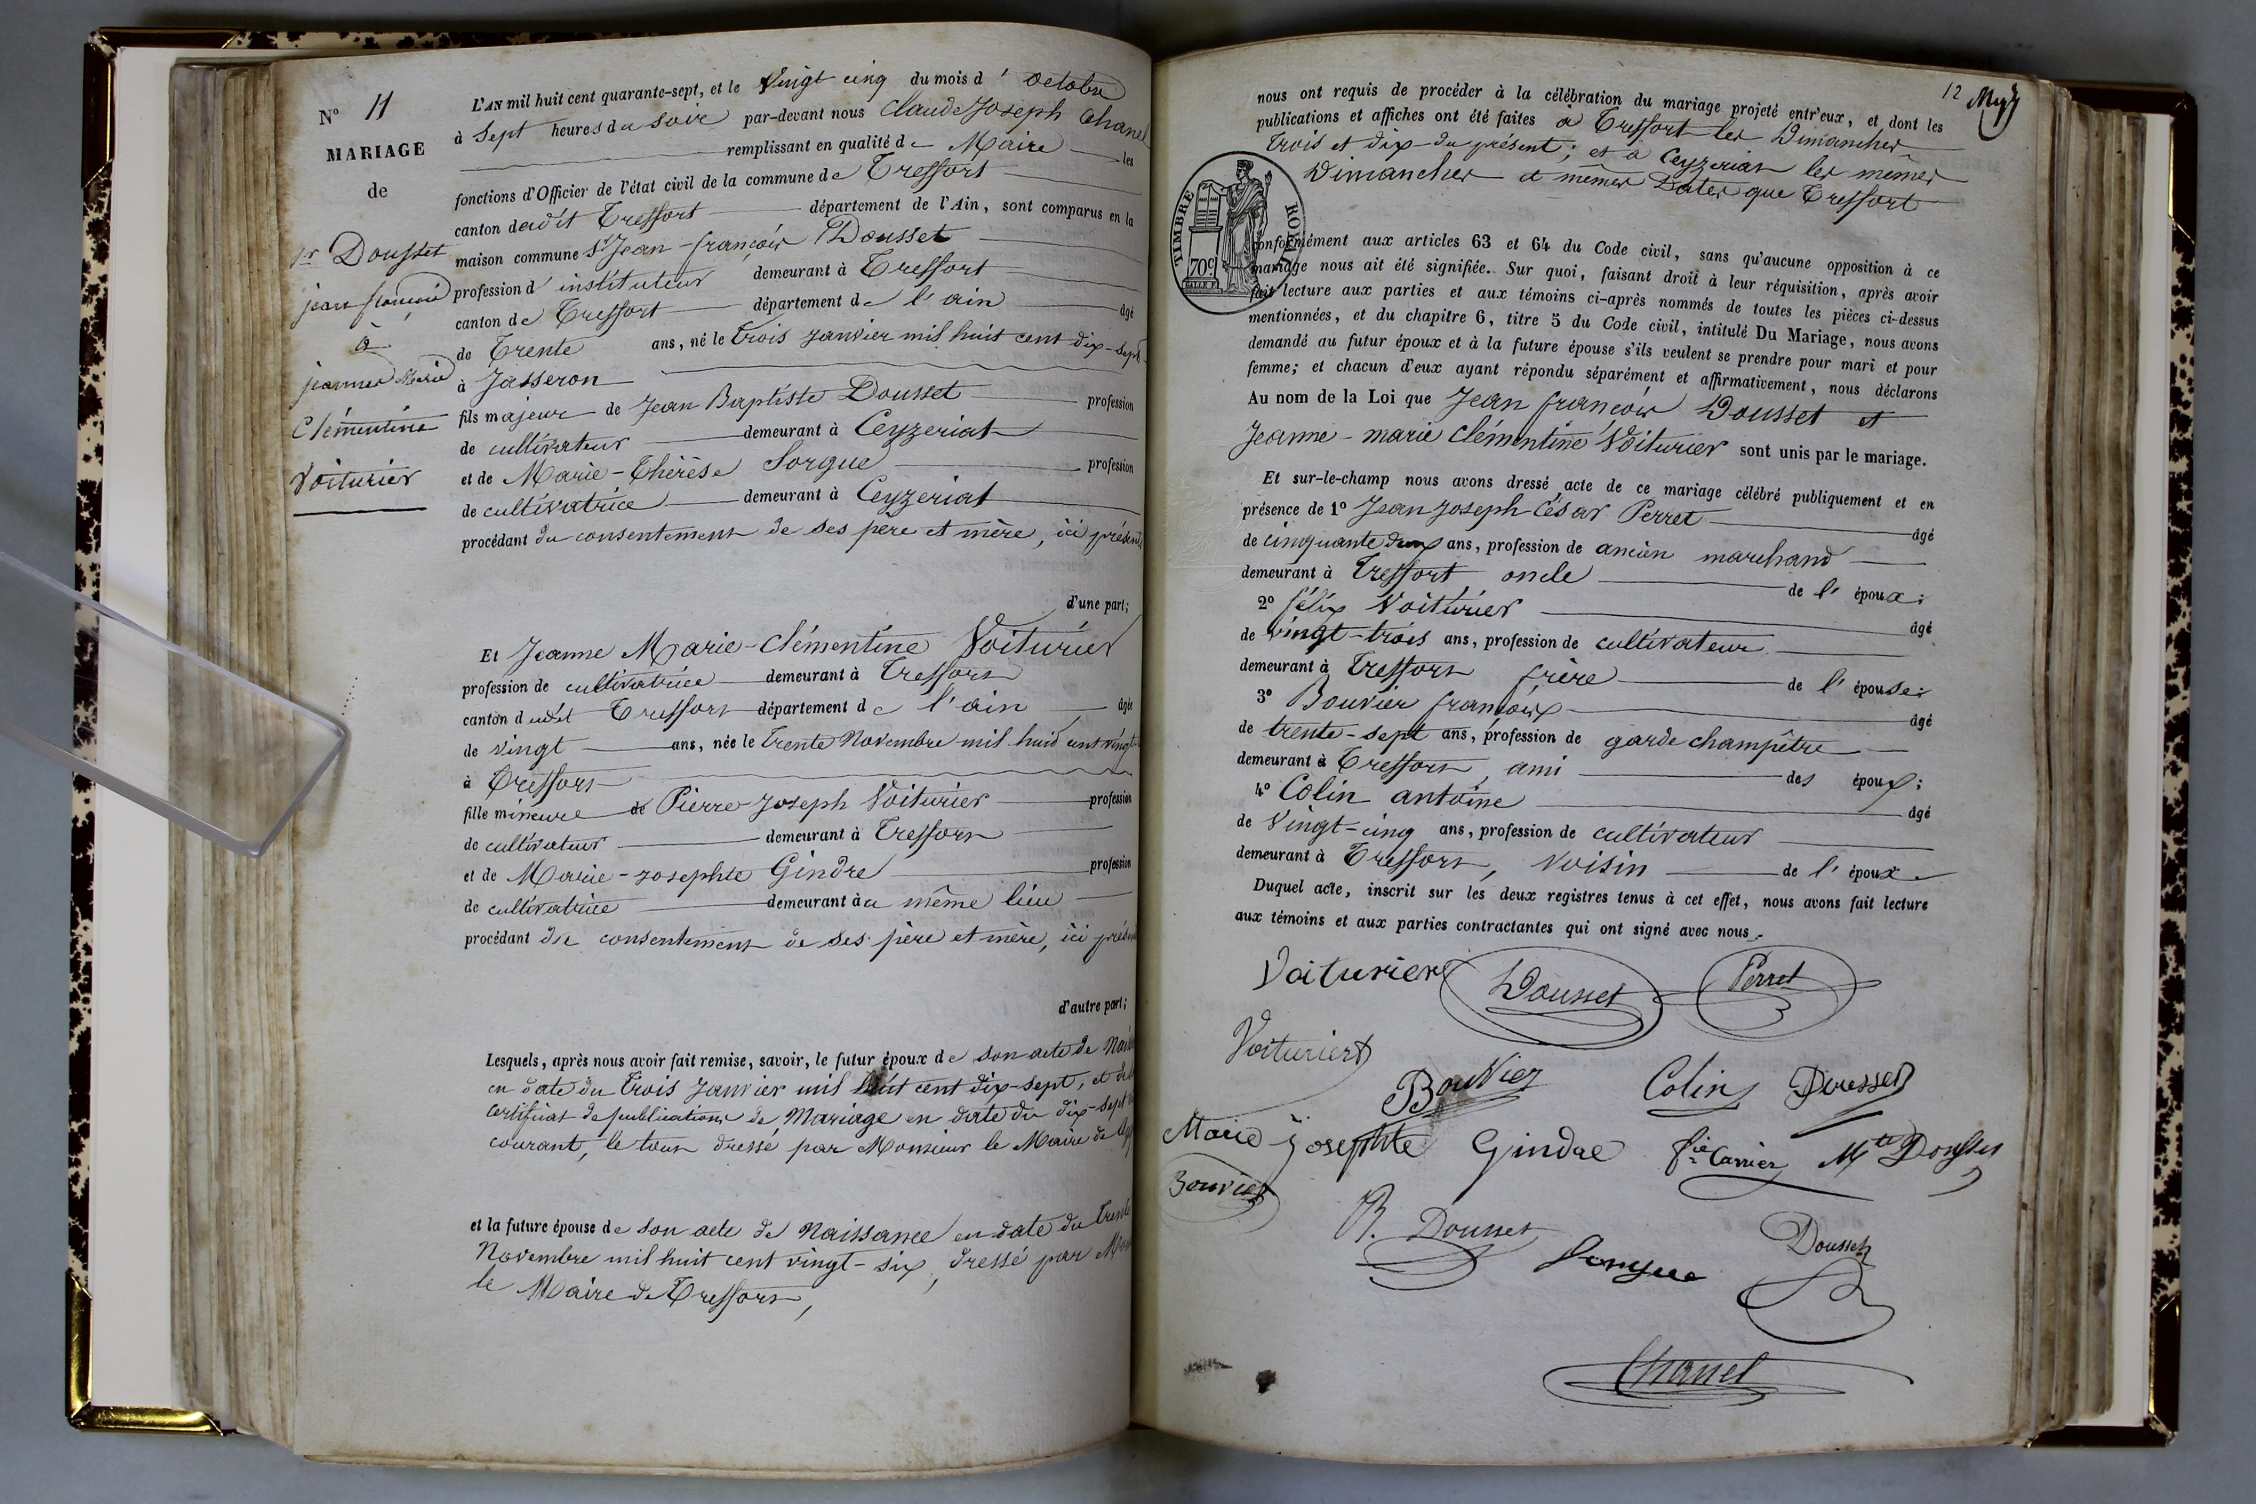 N° 11
MARIAGE
de
Sr Dousset
jean françois
à
jeanne Marie
Clémentine
Voiturier
L'AN mil huit cent quarante-sept, et le Vingt cinq du mois d' octobre
à Sept heures du soir par-devant nous Claude Joseph Chanel
remplissant en qualité de Maire les
fonctions d'Officier de l'état civil de la commune de Treffort
canton dudit Treffort département de l'Ain, sont comparus en la
maison commune Sr Jean-françois Dousset
profession d'instituteur demeurant à Treffort
canton de Treffort département de l'ain âgé
de Trente ans, né le Trois Janvier mil huit cent dix-sept
à Jasseron
fils majeur de Jean Baptiste Dousset profession
de cultivateur demeurant à Ceyzeriat
et de Marie-Thérèse Sorgue profession
de cultivatrice demeurant à Ceyzeriat
procédant du consentement de ses père et mère, ici présents
d'une part;
Et Jeanne Marie-Clémentine Voiturier
profession de cultivatrice demeurant à Treffort
canton dudit Treffort département de l'ain âgée
de vingt ans, née le trente Novembre mil huit cent vingt
à Treffort
fille mineure de Pierre Joseph Voiturier profession
de cultivateur demeurant à Treffort
et de Marie-Josephte Gindre profession
de cultivatrice demeurant au même lieu
procédant du consentement de ses père et mère, ici
d'autre part;
Lesquels, après nous avoir fait remise, savoir, le futur époux de son acte de
en date du Trois Janvier mil huit cent dix-sept, et
certificat de publications de Mariage en date du dix-sept
courant, le tout dressé par Monsieur le Maire de
et la future épouse de son acte de Naissance en date du Trente
Novembre mil huit cent vingt-six, dressé par
le Maire de Treffort,
12
nous ont requis de procéder à la célébration du mariage projeté entr'eux, et dont les
publications et affiches ont été faites à Treffort les Dimanches
Trois et dix du présent; et à Ceyzeriat les mêmes
Dimanches et mêmes Dates que Treffort
TIMBRE ROYAL
70c
conformément aux articles 63 et 64 du Code civil, sans qu'aucune opposition à ce
mariage nous ait été signifiée. Sur quoi, faisant droit à leur réquisition, après avoir
fait lecture aux parties et aux témoins ci-après nommés de toutes les pièces ci-dessus
mentionnées, et du chapitre 6, titre 5 du Code civil, intitulé Du Mariage, nous avons
demandé au futur époux et à la future épouse s'ils veulent se prendre pour mari et pour
femme; et chacun d'eux ayant répondu séparément et affirmativement, nous déclarons
Au nom de la Loi que Jean françois Dousset et
Jeanne-marie Clémentine Voiturier sont unis par le mariage.
Et sur-le-champ nous avons dressé acte de ce mariage célébré publiquement et en
présence de 1° Jean Joseph César Perret âgé
de cinquante deux ans, profession de ancien marchand
demeurant à Treffort oncle de l'époux:
2° félix Voiturier âgé
de vingt-trois ans, profession de cultivateur
demeurant à Treffort frère de l'épouse:
3° Bouvier françois âgé
de trente-sept ans, profession de garde champêtre
demeurant à Treffort, ami des époux:
4° Colin antoine âgé
de Vingt-cinq ans, profession de cultivateur
demeurant à Treffort, voisin de l'époux
Duquel acte, inscrit sur les deux registres tenus à cet effet, nous avons fait lecture
aux témoins et aux parties contractantes qui ont signé avec nous.
Voiturier Dousset Perret
Voiturier
Bouvier Colin Dousset
Marie Josephte Gindre Mte Dousset
Bouvier
B. Dousset Sorgue Dousset
Chanel